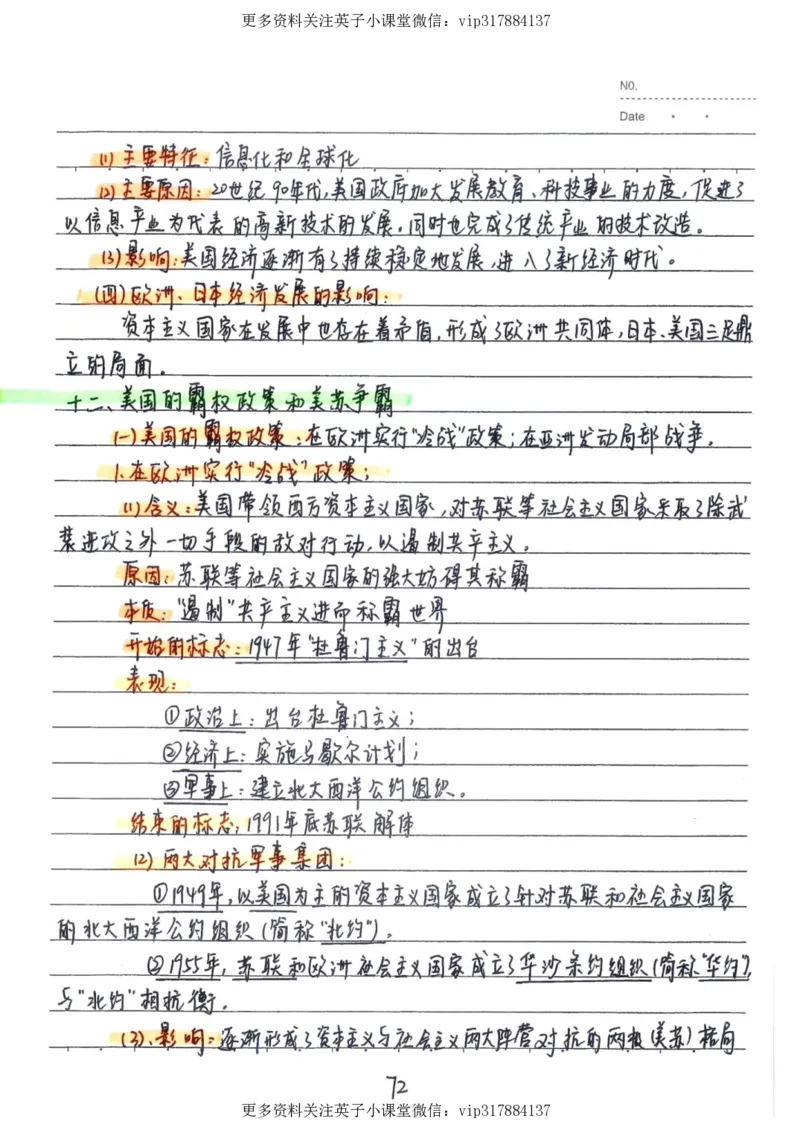 更多资料关注英子小课堂微信：vip317884137
NO.
Date
(1)主要特征：信息化和全球化
(2)主要原因：20世纪90年代，美国政府加大发展教育、科技事业的力度，促进了
以信息产业为代表的高新技术的发展。同时也完成了传统产业的技术改造。
(3)影响：美国经济逐渐有了持续稳定地发展，进入了新经济时代。
(四)欧洲、日本经济发展的影响：
资本主义国家在发展中也存在着矛盾，形成了欧洲共同体，日本、美国三足鼎
立的局面。
十二、美国的霸权政策和美苏争霸
(一)美国的霸权政策：在欧洲实行“冷战”政策；在亚洲发动局部战争。
1.在欧洲实行“冷战”政策；
(1)含义：美国带领西方资本主义国家，对苏联等社会主义国家采取了除武
装进攻之外一切手段的敌对行动，以遏制共产主义。
原因：苏联等社会主义国家的强大妨碍其称霸
本质：“遏制”共产主义进而称霸世界
开始的标志：1947年“杜鲁门主义”的出台
表现：
①政治上：出台杜鲁门主义；
②经济上：实施马歇尔计划；
③军事上：建立北大西洋公约组织。
结束的标志：1991年底苏联解体
(2)两大对抗军事集团：
①1949年，以美国为主的资本主义国家成立了针对苏联和社会主义国家
的北大西洋公约组织(简称“北约”)。
②1955年，苏联和欧洲社会主义国家成立了华沙条约组织(简称“华约”)，
与“北约”相抗衡。
(3)、影响：逐渐形成了资本主义与社会主义两大阵营对抗的两极(美苏)格局
72
更多资料关注英子小课堂微信：vip317884137